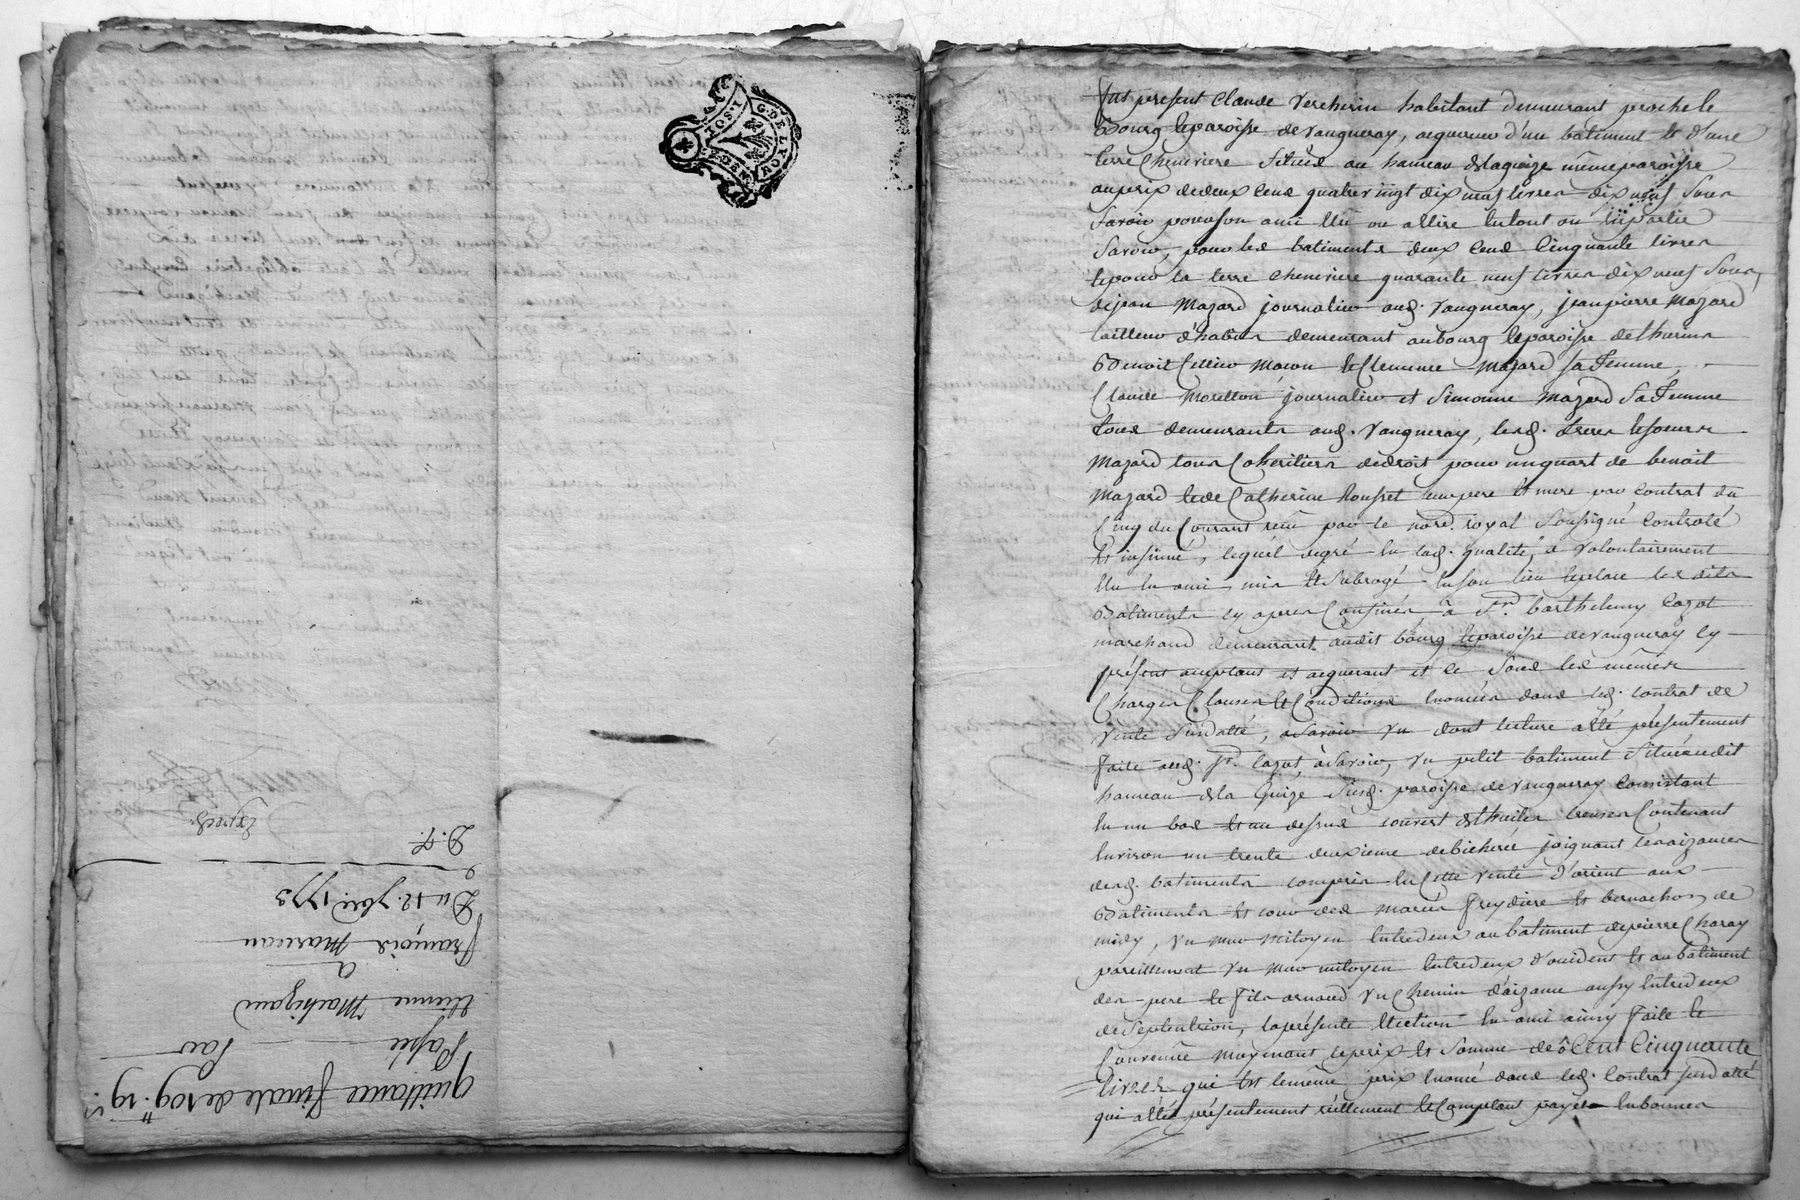 G. DE LYON
quittance finale de 109ᵗᵗ. 19ˢ
Passée par
etienne Machizaud
a
françois mareau
Du 12. 7bre 1773
D. F.
Exped.
fut present Claude Vercherin habitant demeurant proche le
Bourg & paroisse de Vaugneray, acquereur d'un bâtiment & d'une
terre Cheneviere Situés au hameau de la guize même paroisse
au prix de deux Cend quatre vingt dix neuf livres dix neuf Sous
Savoir pour son ami Elû ou a Elire en tout ou en partie
Savoir, pour les batiments deux Cend Cinquante livres
& pour la terre cheneviere quarante neuf livres dix neuf Sous,
de jean Mazard journalier aud. Vaugneray, jean pierre Mazard
tailleur d'habits demeurant au bourg & paroisse de thurins
Benoit Cellier Macon & Clemence Mazard sa Femme,
Claude Moretton journalier et Simonne Mazard Sa Femme
tous demeurants aud. Vaugneray, lesd. freres & soeurs
Mazard tous Coheritiers de droit pour un quart de benoit
Mazard & de Catherine Rousset leur pere & mere par Contrat du
Cinq du Courant reçû par le no.re royal Soussigné Controlé
& insinué, lequel de gré en lad. qualité, a volontairement
Elu en ami, mis & Subrogé en son lieu & place les dits
Batiments cy apres Confinés à S.r barthelemy Cazot
marchand demeurant audit bourg & paroisse de vaugneray cy
présent acceptant et acquerant et ce Sous les mêmes
Charges Clauses & Conditions enoncées dans led. contrat de
Vente Surdatté, dont lecture a été présentement
faite aud. S.r Cazot à Savoir, Un petit batiment Situé audit
hameau de la Guize Susd. paroisse de vaugneray Consistant
en un bas & un dessus couvert de thuiles Creuses Contenant
Environ un trente deuxieme de bicherée joignant les aizances
desd. batiments comprises en Cette vente d'orient aux
Batiments & cour des mariés freydiere & bernachon de
midy, Un mur mitoyen entredeux au batiment de pierre Charay
pareillement Un Mur mitoyen Entredeux d'occident & au bâtiment
des pere & fils arnaud Un Chemin d'aizance aussy Entredeux
de Septentrion, la présente Election en ami ainsy Faite &
Convenüe moyenant le prix & Somme de Cent Cinquante
livres qui Est le même prix enoncé dans led. Contrat surdatté
qui a été présentement réellement & Comptant payée en bonnes